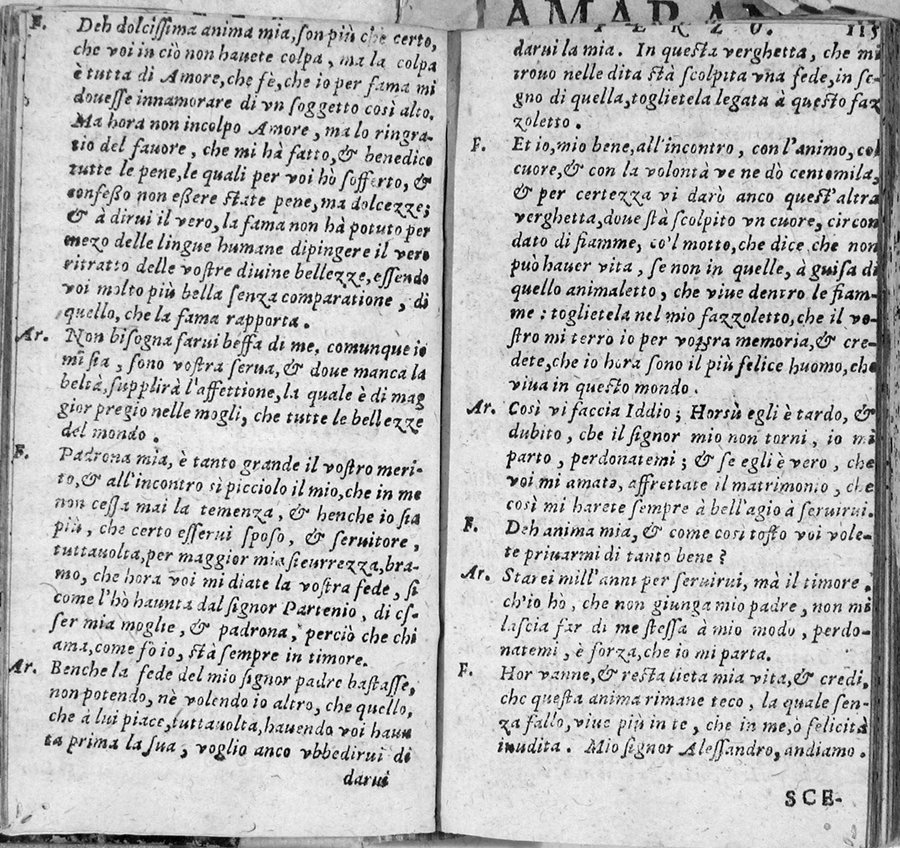 F. Deh dolcissima anima mia, son più che certo,
che voi in ciò non hauete colpa, ma la colpa
è tutta di Amore, che fè, che io per fama mi
douesse innamorare di vn soggetto così alto.
Ma hora non incolpo Amore, ma lo ringra-
tio del fauore, che mi hà fatto, & benedico
tutte le pene, le quali per voi hò sofferto, &
confesso non essere state pene, ma dolcezze;
& à dirui il vero, la fama non hà potuto per
mezo delle lingue humane dipingere il vero
ritratto delle vostre diuine bellezze, essendo
voi molto più bella senza comparatione, di
quello, che la fama rapporta.
Ar. Non bisogna farui beffa di me, comunque io
mi sia, sono vostra serua, & doue manca la
beltà, supplirà l'affettione, la quale è di mag
gior pregio nelle mogli, che tutte le bellezze
del mondo.
F. Padrona mia, è tanto grande il vostro meri-
to, & all'incontro sì picciolo il mio, che in me
non cessa mai la temenza, & henche io sia
più, che certo esserui sposo, & seruitore,
tuttauolta, per maggior mia sicurrezza, bra-
mo, che hora voi mi diate la vostra fede, si
come l'hò hauuta dal signor Partenio, di es-
ser mia moglie, & padrona, perciò che chi
ama, come fo io, stà sempre in timore.
Ar. Benche la fede del mio signor padre bastasse,
non potendo, nè volendo io altro, che quello,
che à lui piace, tuttauolta, hauendo voi hauu
ta prima la sua, voglio anco vbbedirui di
darui
TERZO. 115
darui la mia. In questa verghetta, che mi
trouo nelle dita stà scolpita vna fede, in se-
gno di quella, toglietela legata à questo faz
zoletto.
F. Et io, mio bene, all'incontro, con l'animo, col
cuore, & con la volontà ve ne dò centomila,
& per certezza vi darò anco quest'altra
verghetta, doue stà scolpito vn cuore, circon
dato di fiamme, co'l motto, che dice, che non
può hauer vita, se non in quelle, à guisa di
quello animaletto, che viue dentro le fiam-
me: toglietela nel mio fazzoletto, che il vo-
stro mi terrò io per vostra memoria, & cre-
dete, che io hora sono il più felice huomo, che
viua in questo mondo.
Ar. Così vi faccia Iddio; Horsù egli è tardo, &
dubito, che il signor mio non torni, io mi
parto, perdonatemi; & se egli è vero, che
voi mi amate, affrettate il matrimonio, che
così mi harete sempre à bell'agio à seruirui.
F. Deh anima mia, & come così tosto voi vole-
te priuarmi di tanto bene?
Ar. Starei mill'anni per seruirui, mà il timore,
ch'io hò, che non giunga mio padre, non mi
lascia far di me stessa à mio modo, perdo-
natemi, è forza, che io mi parta.
F. Hor vanne, & resta lieta mia vita, & credi,
che questa anima rimane teco, la quale sen-
za fallo, viue più in te, che in me, ò felicità
inudita. Mio signor Alessandro, andiamo.
SCE-